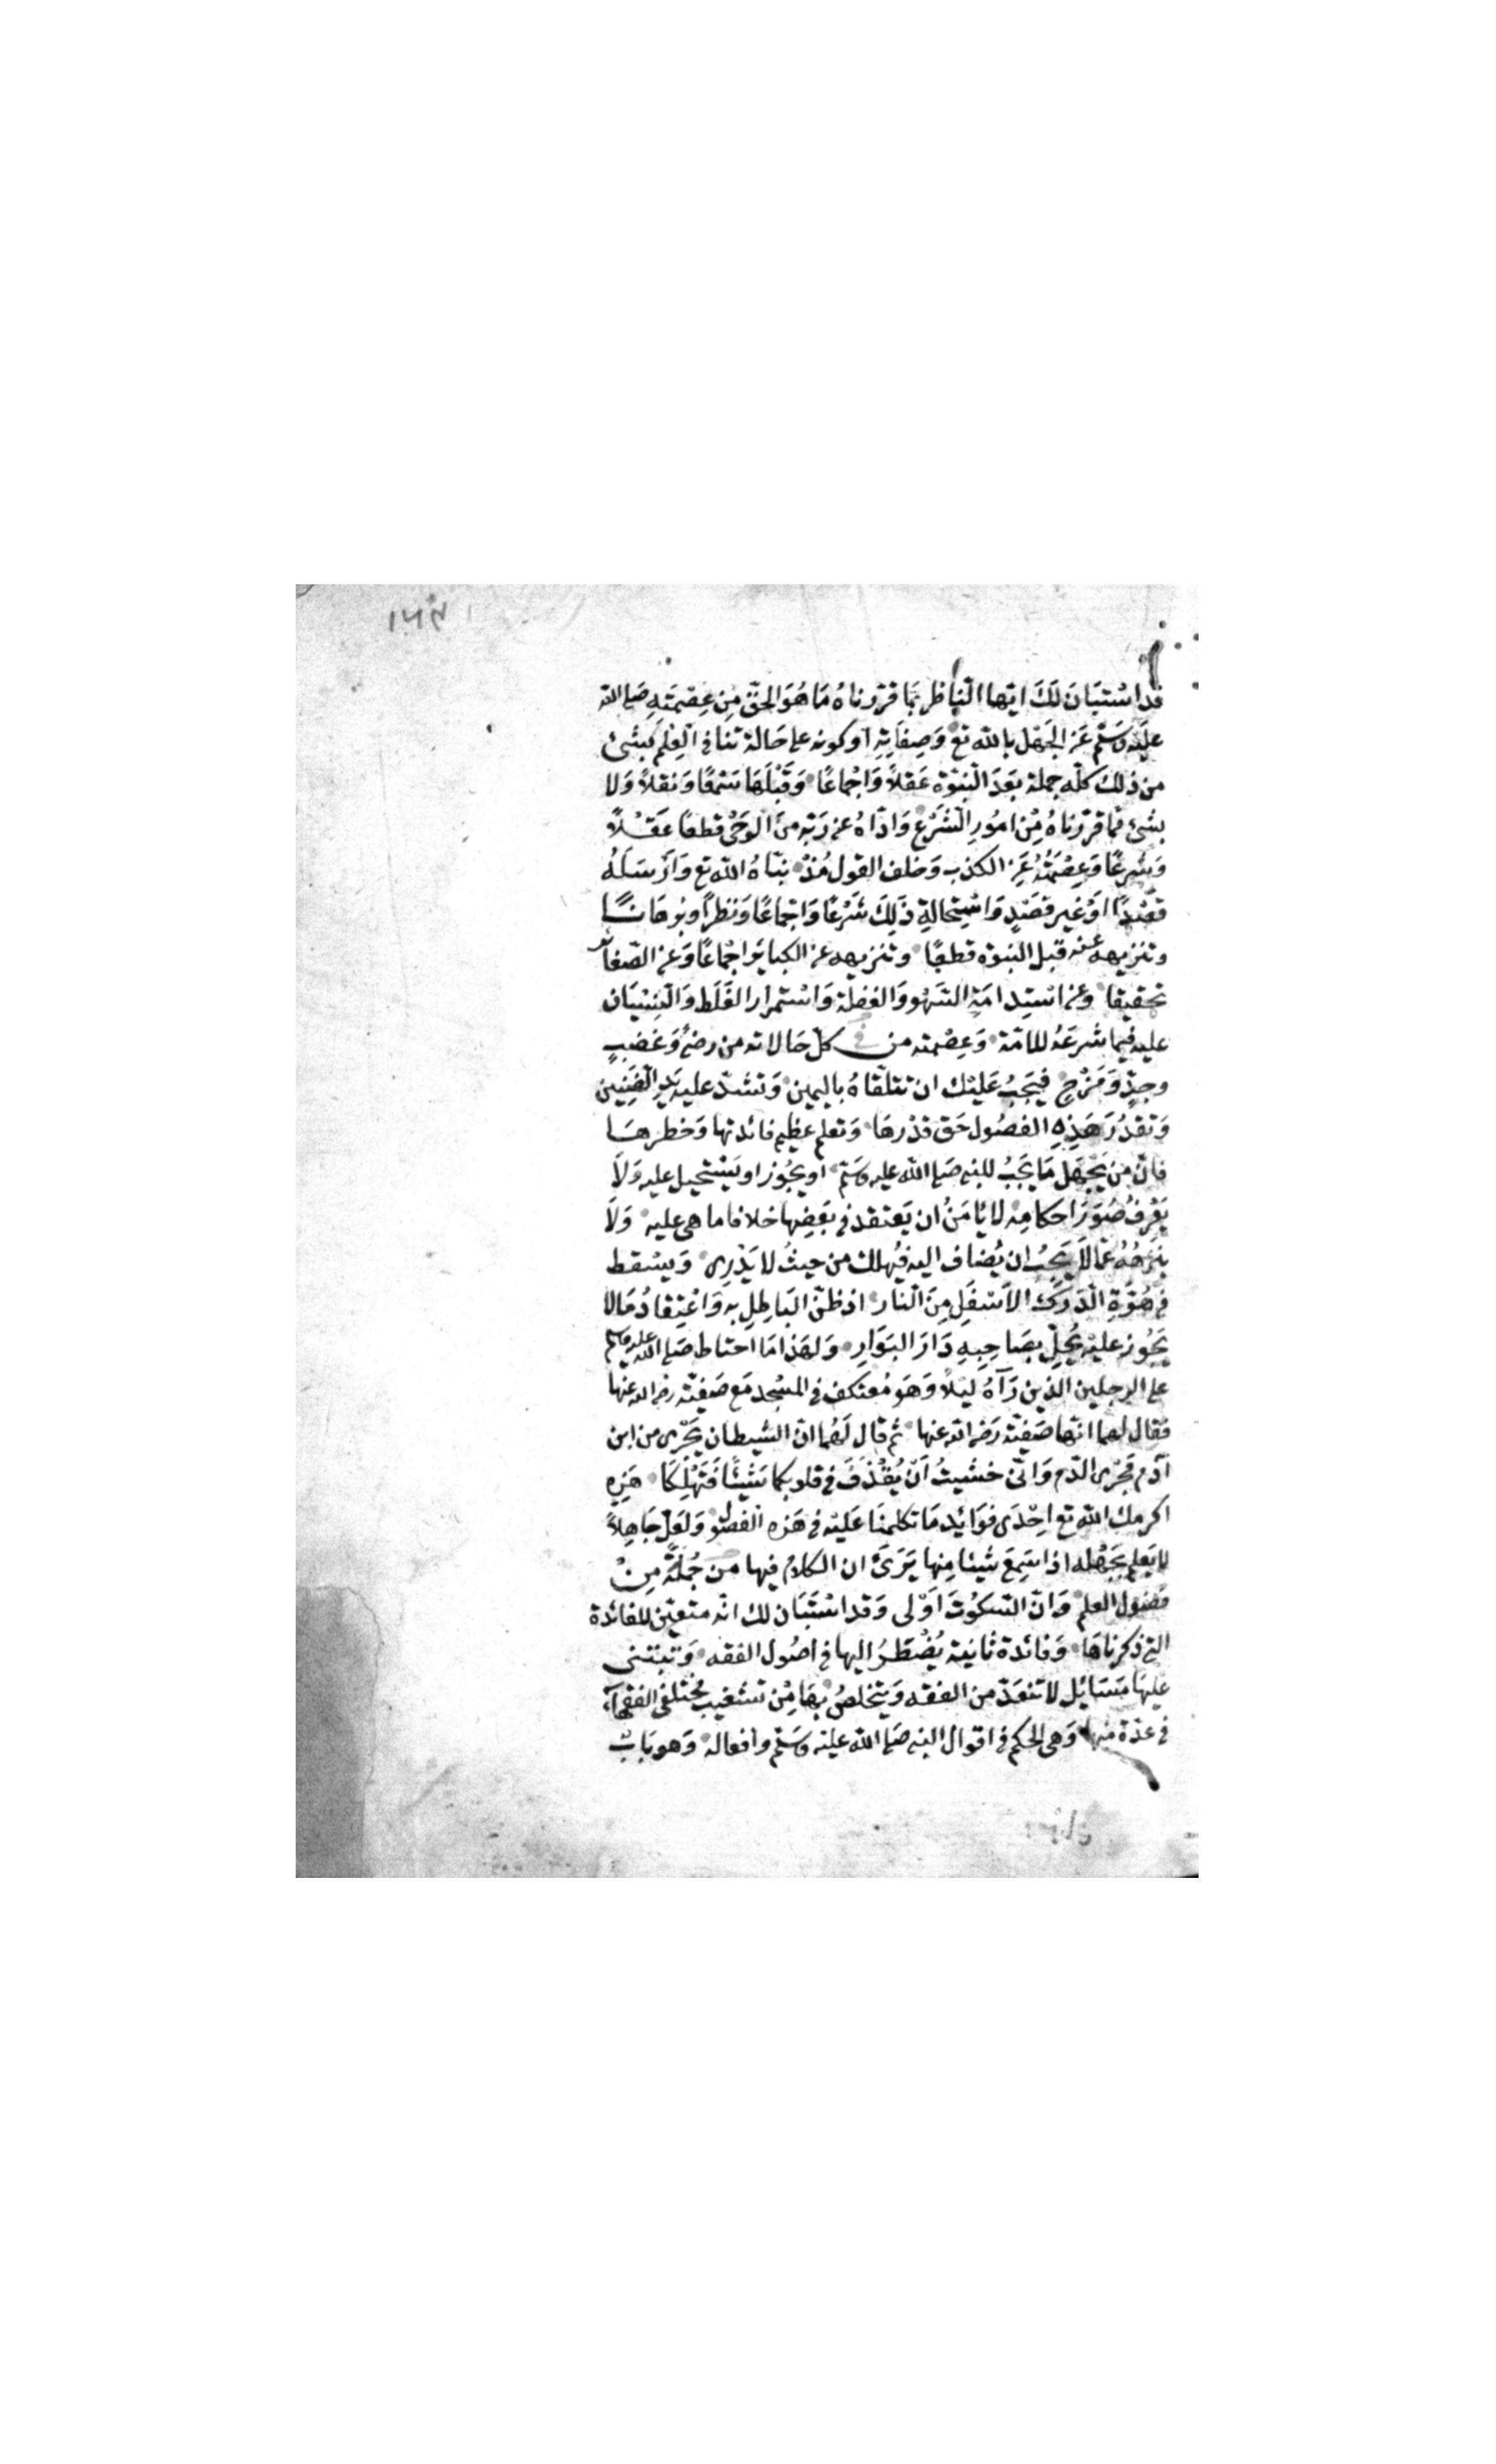 ١٦٣
قد اسْتبَانَ لَكَ ايّها النّاظر بمَا قرّرناهُ مَا هُوَ الحقّ مِن عِصْمَتِهِ صَلى الله
عليْه وَسَلّم عَن الجَهْل بالله تع وَصِفاتِهِ اَو كونه على حَالة تنافى العِلم بشئ
من ذلكَ كلّه جملة بَعْدَ النّبوّة عَقلاً وَاجْماعًا وَقَبْلهَا سَمْعًا وَنقلاً وَلا
بشئ ممّا قرّرناهُ مِن امُورِ الشّرْع وَادّاهُ عن رَبّه منَ الوَحْى قطعًا عَقْلاً
وَشرعًا وَعِصْمَتُهُ عَن الكذب وَخلف القول مُنْذُ نبّاهُ الله تع وَارْسَلهُ
قصْدًا اَوْ غيرِ قصْدٍ وَاسْتِحالةِ ذَلِكَ شَرْعًا وَاجْماعًا وَنظرًا وبُرهَانًا
وتنزيهه عنه قبل النبوة قطعًا وتنزيهه عن الكبائر اجْماعًا وَعن الصّغائر
تحقيقا وعن اسْتِدامَةِ السّهْو وَالغفلة وَاسْتمرار الغَلَط وَالنّسْيَان
عليه فيما شرعَهُ للامّة وَعِصْمته من فى كلّ حَالاته من رضىً وَغضبٍ
وجِدٍّ وَمَزْحٍ فيَجبُ عَليْك ان تتلقّاهُ باليمين وَتشدّ عليه يَدَ الضّنِين
وَتقدُرَ هَذِهِ الفصُول حَق قدْرهَا وَتعلم عظيم فائدتها وَخطرهَا
فانّ من يَجْهَل مَا يَجبُ للنبى صَلى الله عليه وَسَلّم او يجُوز او يَسْتحيل عليه وَلاَ
يَعْرفُ صُوَرَ احكامِه لا يَامَنُ ان يَعتقد فى بَعْضِهَا خلاف ما هى عليه وَلاَ
ينزّههُ عمّا لاَ يَجبُ ان يُضاف اليه فيُهلك من حيثُ لا يَدْرِى وَيسْقط
فى هُوّةِ الدّرَكِ الاَسْفَلِ مِنَ النّار اذ ظنّ البَاطِلِ به وَاعْتِقادُ مَا لا
يَجُوز عليْه يُحِلّ بصَاحِبِهِ دَارَ البَوَارِ وَلهَذا مَا احتاط صَلى الله عليه وسلم
على الرجلين الذين رَآهُ لَيْلاً وَهَو مُعتكف فى المسْجد مَع صَفِيّة رضى الله عنها
فقال لهما انّها صَفيّة رَضى الله عنها ثم قال لَهُما انّ الشّيطان يَجْرى من ابن
آدَم مَجْرى الدّم وَانّى خشيتُ اَنْ يُقْذَفَ فى قلوبكما شَيْئًا فَتَهْلِكَا هَذِهِ
اكرمك الله تع اِحْدَى فوَائِدِ مَا تكلمنَا عَليْه فى هَذه الفصُول وَلعَلّ جَاهِلاً
لا يَعلم بجَهْله اذا سَمِعَ شيئا مِنها يَرَى ان الكلام فيها من جُمْلةِ مِنْ
فضول العلم وَانّ السّكوُتَ اَوْلى وَقد اسْتبَان لك انّه متعيّن للفائدة
التى ذكرناهَا وَفائدة ثانية يُضْطَرُ اليها فى اصُول الفقه وَتبتنى
عَليْهَا مَسَائِل لا تنعَدّ من الفقه وَيتخلصُ بهَا مِنْ تشغيب مُختلفى الفقهآء
فى عدّة منها وَهى الحكم فى اقوال النبى صَلى الله عليْه وَسَلّم وافعاله وَهو بَابٌ